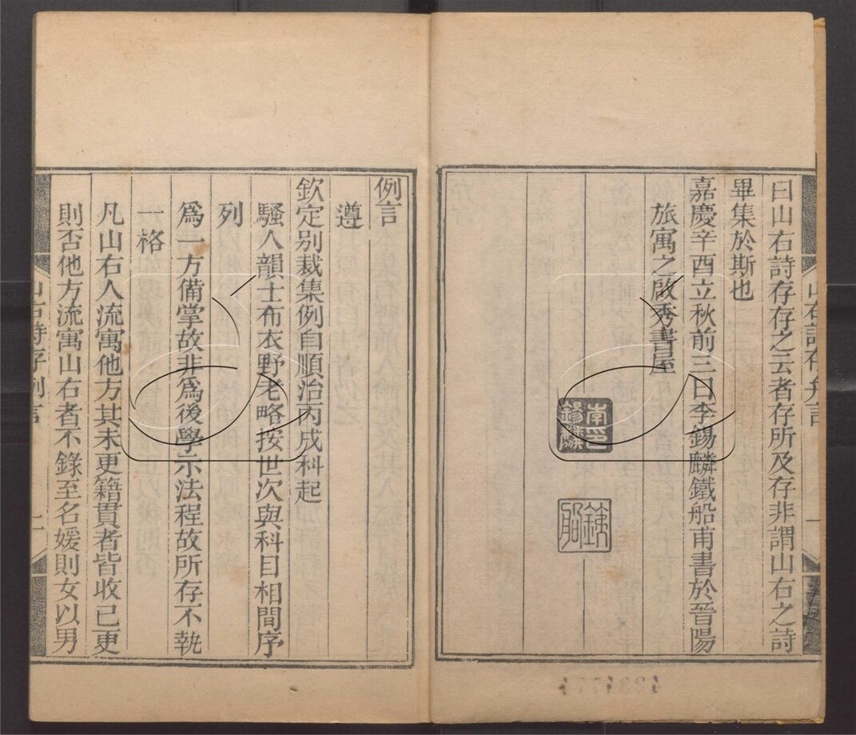 曰山右詩存存之云者存所及存非謂山右之詩
畢集於斯也
嘉慶辛酉立秋前三日李錫麟鐵船甫書於晉陽
旅寓之啟秀書屋
例言
遵
欽定別裁集例自順治丙戌科起
騷人韻士布衣野老略按世次與科目相間序
列
爲一方備掌故非爲後學示法程故所存不執
一格
凡山右人流寓他方其未更籍貫者皆收已更
則否他方流寓山右者不錄至名媛則女以男
山右詩存例言
二